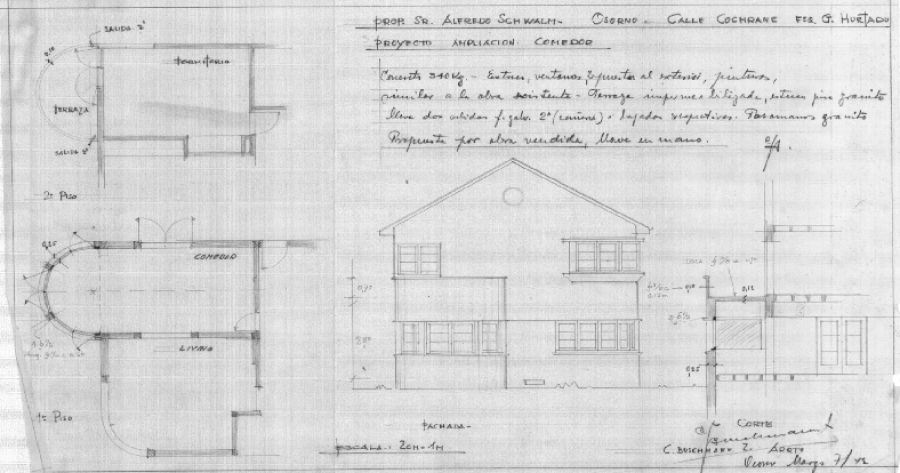 PROP. SR. ALFREDO SCHWALM - OSORNO - CALLE COCHRANE ESQ. G. HURTADO
PROYECTO AMPLIACION COMEDOR
Concreto 340 Kg. - Estuco, ventanas, al exterior, pinturas,
similar a la obra existente - Terraza impermeabilizada, estuco fino granito
lleva dos salidas 2" (cañería) o bajadas respectivas. Pasamanos granito
Propuesta por obra vendida, llave en mano.
SALIDA 2"
DORMITORIO
TERRAZA
SALIDA 2"
2º PISO
COMEDOR
LIVING
1º PISO
0,25
0,12
0,25
FACHADA -
ESCALA: 2CM - 1M
CORTE
C. BUSCHMANN Z. ARQTO
Osorno Marzo 7/42